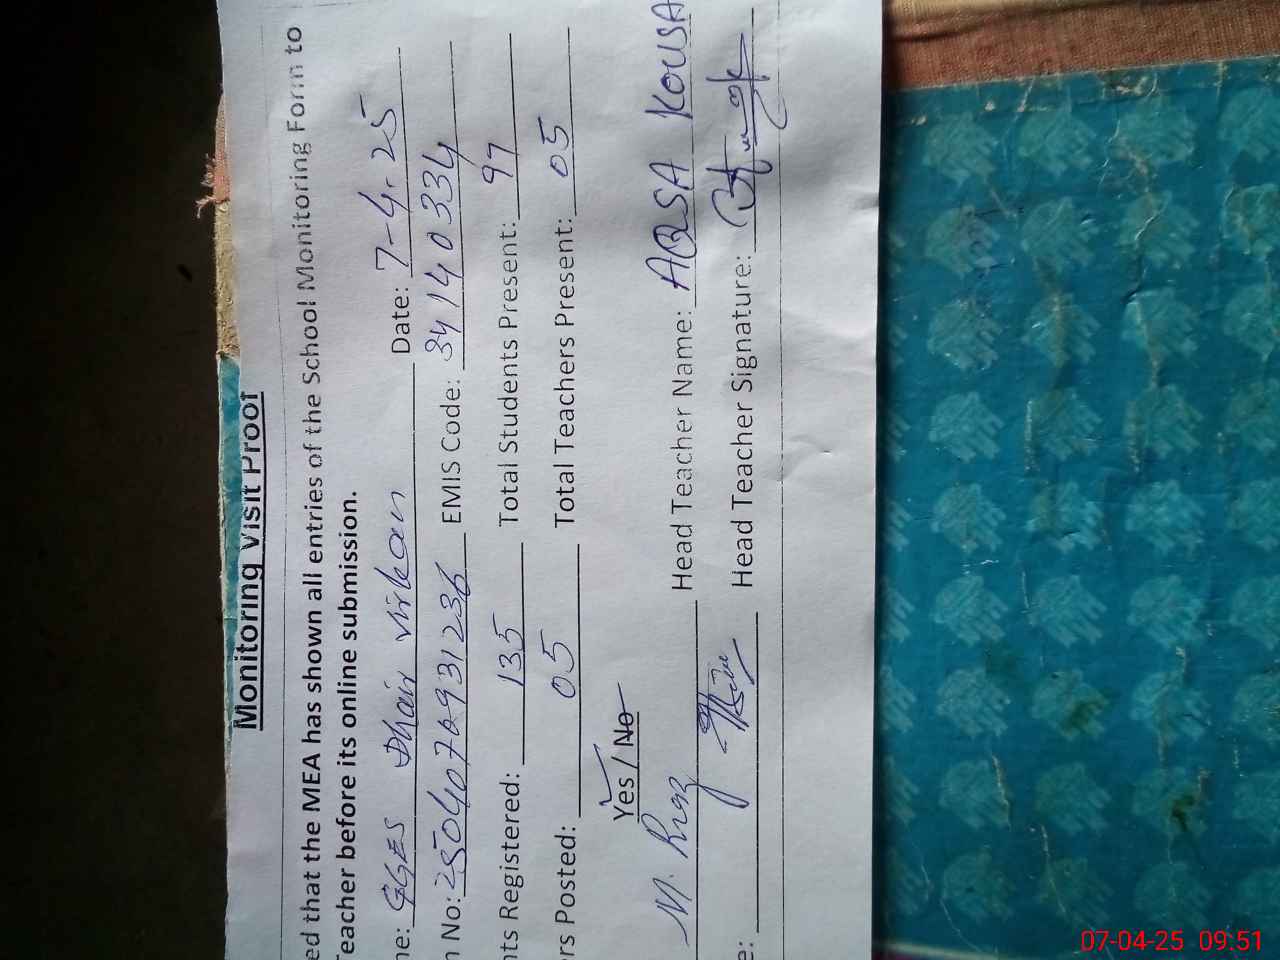 Monitoring Visit Proof
ed that the MEA has shown all entries of the School Monitoring Form to
Teacher before its online submission.
me: GGES Dhair Virkan Date: 7-4-25
n No: EMIS Code: 34140334
nts Registered: 135 Total Students Present: 97
ers Posted: 05 Total Teachers Present: 05
Yes / No
M. Riaz Head Teacher Name: AQSA KOUSA
e: Head Teacher Signature:
07-04-25 09:51